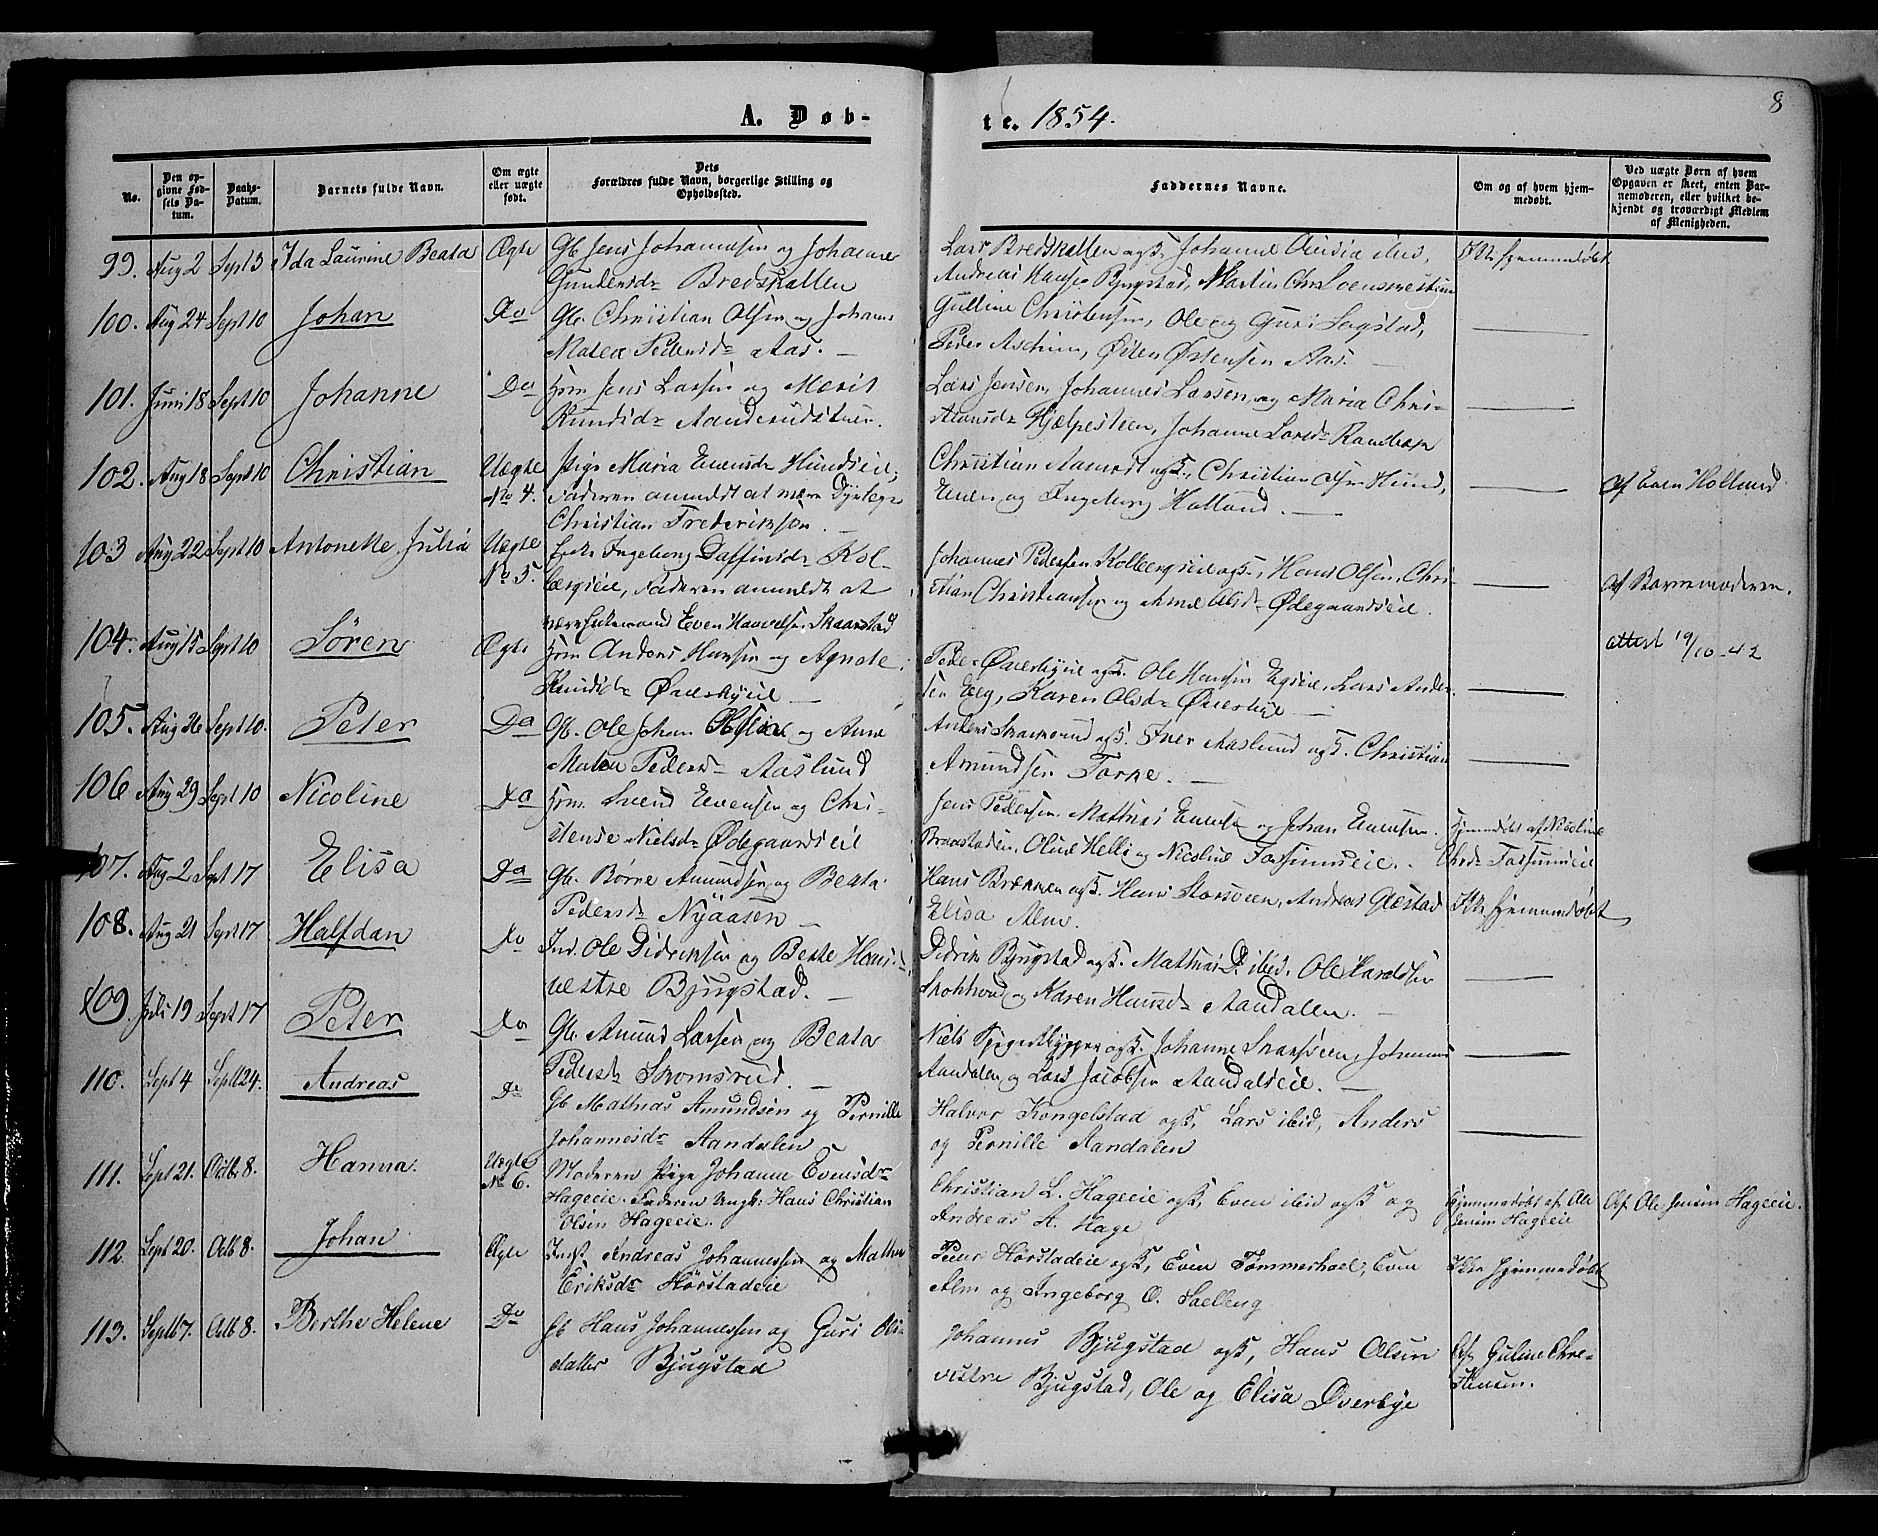 A. Døb-
te. 1854.
8
No.
Den op-
givne Fød-
sels Da-
tum.
Daabs-
Datum.
Barnets fulde Navn.
Om ægte
eller uægte
født.
Dets
Forældres fulde Navn, borgerlige Stilling og
Opholdssted.
Faddernes Navne.
Om og af hvem hjem-
medøbt.
Ved uægte Børn af hvem
Opgaven er skeet, enten Bar-
nemoderen, eller hvilket be-
kjendt og troværdigt Medlem
af Menigheden.
99. Aug 2 Sept 3 Ida Laurine Beata Ægte Gb. Jens Johannesen og Johanne
Gundersdr Bredskallen
Lars Bredskallen ogs. Johanne ibid,
Andreas Hansen Bjugstad, Martin Chr
Ikke hjemmedøbt
100. Aug 24 Sept 10 Johan Do Gb. Christian Olsen og Johanne
Mathea Pedersdr Aas. —
Gulline Christensen, Ole og Guri Sogstad,
Peder Aschim, Østen Østensen Aas. —
101. Juni 18 Sept 10 Johanne Do Hsm Jens Larsen og Marit
Knudsdr Aanderudstuen.
Lars Jensen, Johannes Larsen og Maria Chri-
stiansdr Hjælpesteen, Johanne Larsdr
102. Aug 18 Sept 10 Christian Uægte
No 4.
Pige Maria Evensdr Hundseie,
Faderen anmeldt at være
Christian Frederiksøn. —
Christian ogs., Christian Olsen Hund,
Even og Ingeborg Holland. —
af Even Holland
103 Aug 22 Sept 10 Antonette Julia Uægte
No 5.
Enke Ingeborg Daffinsdr Kol-
bergseie, Faderen anmeldt at
være Enkemand Even Skaarstad
Johannes Pedersen Kolbergseie ogs., Hans Olsen, Chri-
stian Christiansen og Anne Olsdr Ødegaardseie.
af Barnemoderen.
104. Aug 15 Sept 10 Søren Ægte Hsm Anders Hansen og Agnete
Knudsdr Øverbyeie —
Peder Øverbyeie ogs. Ole Hansen Egseie, Lars Ander-
sen Eeg, Karen Olsdr Øverbye —
attest 19/10-42
105. Aug 26 Sept 10. Peter Do Gb. Ole Johan Olsen og Anne
Mathea Pedersdr Aaslund
Anders ogs. Iver Aaslund ogs. Christian
Amundsen Forke. —
106 Aug 29 Sept 10 Nicoline Do Hsm. Svend Evensen og Chri-
stense Nielsdr Ødegaardseie
Jens Pedersen Mathias Evensen og Johan Evensen.
Braastaden, Oline Helli og Nicoline Fossumseie.
Hjemmedøbt af Nicoline
Chrdr Fossumseie
107. Aug 2 Sept 17 Elisa Do Gb. Børre Amundsen og Beata
Pedersdr Nyaasen —
Hans Brennen ogs. Hans Storsveen, Andreas Glæstad
Elisa Alm.
Ikke hjemmedøbt
108. Aug 21 Sept 17 Halfdan Do Ind. Ole Didriksen og Beate Hans-
vestre Bjugstad. —
Didrik Bjugstad ogs. Mathias D. ibid. Ole
og Karen Hansdr Aandalen. —
109. Juli 19 Sept 17 Peter Do Gb. Amund Larsen og Beata
Pedersdr Stromsrud. —
Niels ogs. Johanne, Johannes
Aandalen og Lars Jacobsen Aandalseie. —
110. Sept 4 Sept 24. Andreas Do Gb Mathias Amundsen og Pernille
Johannesdr Aandalen
Halvor Kongelstad ogs., Lars ibid, Anders
og Pernille Aandalen
111. Sept 21. Octb 8. Hanna. Uægte
No 6.
Moderen Pige Johanne Evensdr
Hageeie. Faderen Ungk. Hans Christian
Olsen Hageeie.
Christian L. Hageeie ogs., Even ibid ogs og
Andreas A. Hage
Hjemmedøbt af Ole
Jensen Hageeie
Af Ole Jensen Hageeie.
112. Sept 20. Octb 8. Johan Ægte Inds. Andreas Johannessen og Mathea
Eriksdr Hörstadeie
Peder Hörstadeie ogs, Even Tømmerhoel, Even
Alm og Ingeborg O. Saelleng
Ikke hjemmedøbt
113. Septb 7. Octb 8. Berthe Helene Do Gb Hans Johannessen og Guri Ols-
datter Bjugstad
Johannes Bjugstad ogs, Hans Olsen
vestre Bjugstad, Ole og Elisa Øverbye
Af Guline Chri-
stensen.